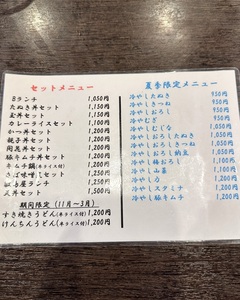 セットメニュー
Bランチ 1,050円
たぬき丼セット 1,150円
玉丼セット 1,100円
カレーライスセット 1,100円
かつ丼セット 1,200円
親子丼セット 1,200円
開花丼セット 1,200円
豚キムチ丼セット 1,200円
キムチ鍋(半ライス付) 1,200円
さば味噌煮セット 1,200円
ランチ 1,250円
天丼セット 1,500円
期間限定 (11月〜3月)
すき焼きうどん(半ライス付) 1,200円
けんちんうどん(半ライス付) 1,200円
夏季限定メニュー
冷やしたぬき 950円
冷やしきつね 950円
冷やしおろし 950円
冷やむぎ 950円
冷やしむじな 1,050円
冷やしおろしたぬき 1,050円
冷やしおろしきつね 1,050円
冷やしおろし納豆 1,050円
冷やし梅おろし 1,100円
冷やし山菜 1,100円
冷やし 1,200円
冷やしスタミナ 1,200円
冷やし豚キムチ 1,200円